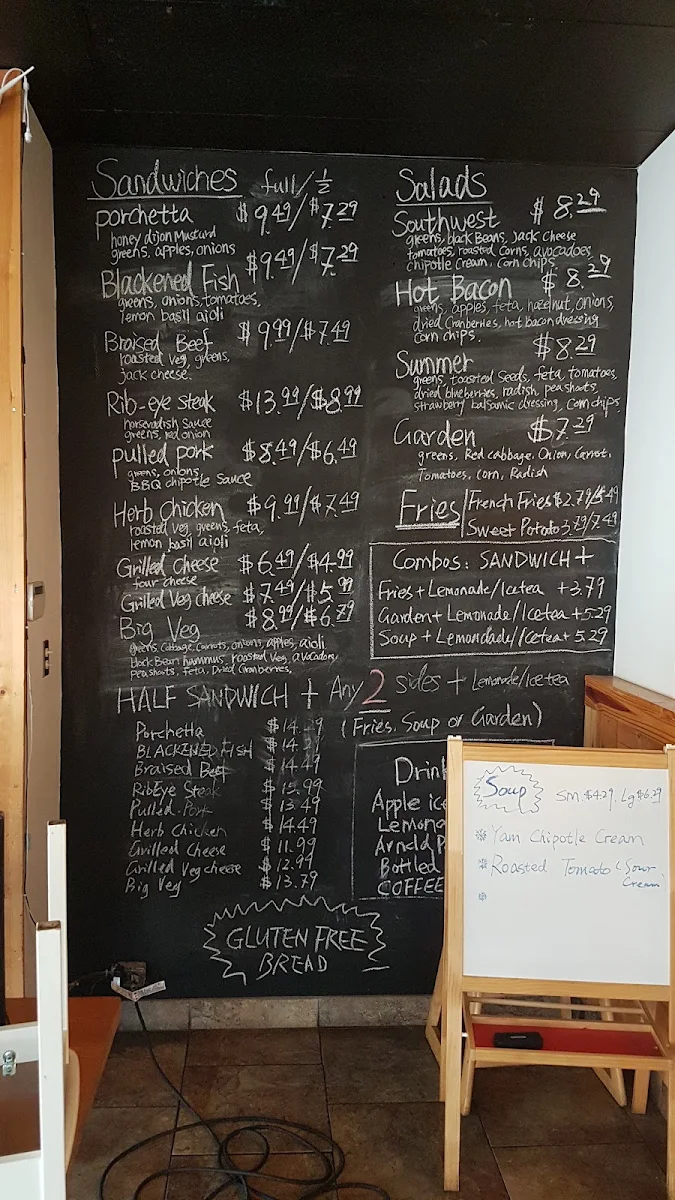 Sandwiches full/½
porchetta $9.49/$7.29
honey dijon Mustard
greens, apples, onions
Blackened Fish $9.49/$7.29
greens, onions, tomatoes,
lemon basil aioli
Braised Beef $9.99/$7.49
roasted veg, greens,
jack cheese.
Rib-eye steak $13.99/$8.99
horseradish sauce
greens, red onion
pulled pork $8.49/$6.49
greens, onions,
BBQ chipotle sauce
Herb Chicken $9.99/$7.49
roasted veg, greens, feta,
lemon basil aioli
Grilled Cheese $6.49/$4.99
four cheese
Grilled Veg cheese $7.49/$5.99
Big Veg $8.99/$6.79
greens, Cabbage, Carrots, onions, apples, aioli
black Bean hummus, roasted Veg, avocados,
peashoots, feta, Dried Cranberries,
Salads
Southwest $8.29
greens, black Beans, Jack Cheese
tomatoes, roasted Corns, avocadoes,
chipotle Cream, corn chips
Hot Bacon $8.29
greens, apples, feta, hazelnut, onions,
dried Cranberries, hot bacon dressing
Corn chips.
Summer $8.29
greens, toasted seeds, feta, tomatoes,
dried blueberries, radish, peashoots,
strawberry balsamic dressing, Corn chips
Garden $7.29
greens, Red cabbage, Onion, Carrot,
Tomatoes, corn, Radish
Fries French Fries $2.79/5.49
Sweet Potato 3.79/7.49
Combos: SANDWICH +
Fries + Lemonade/Icetea +3.79
Garden + Lemonade/Icetea +5.29
Soup + Lemondade/Icetea + 5.29
HALF SANDWICH + Any 2 sides + Lemonade/Icetea
(Fries, Soup or Garden)
Porchetta $14.29
BLACKENED FISH $14.29
Braised Beef $14.49
RibEye Steak $15.99
Pulled Pork $13.49
Herb Chicken $14.49
Grilled Cheese $11.99
Grilled Veg cheese $12.99
Big Veg $13.79
Drin
Apple ice
Lemona
Arnold P
Bottled
COFFEE
GLUTEN FREE
BREAD
Soup Sm.$4.29. Lg$6.29
Yam Chipotle Cream
Roasted Tomato (Sour
Cream)